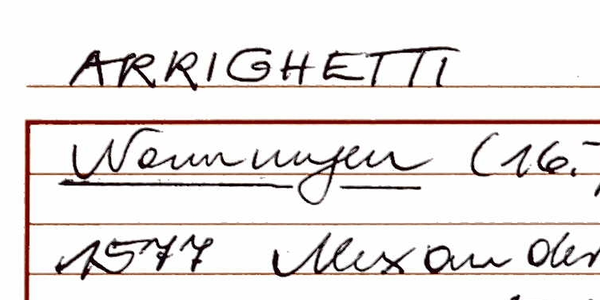 ARRIGHETTI
Nennungen (16.-
1577 Alexander